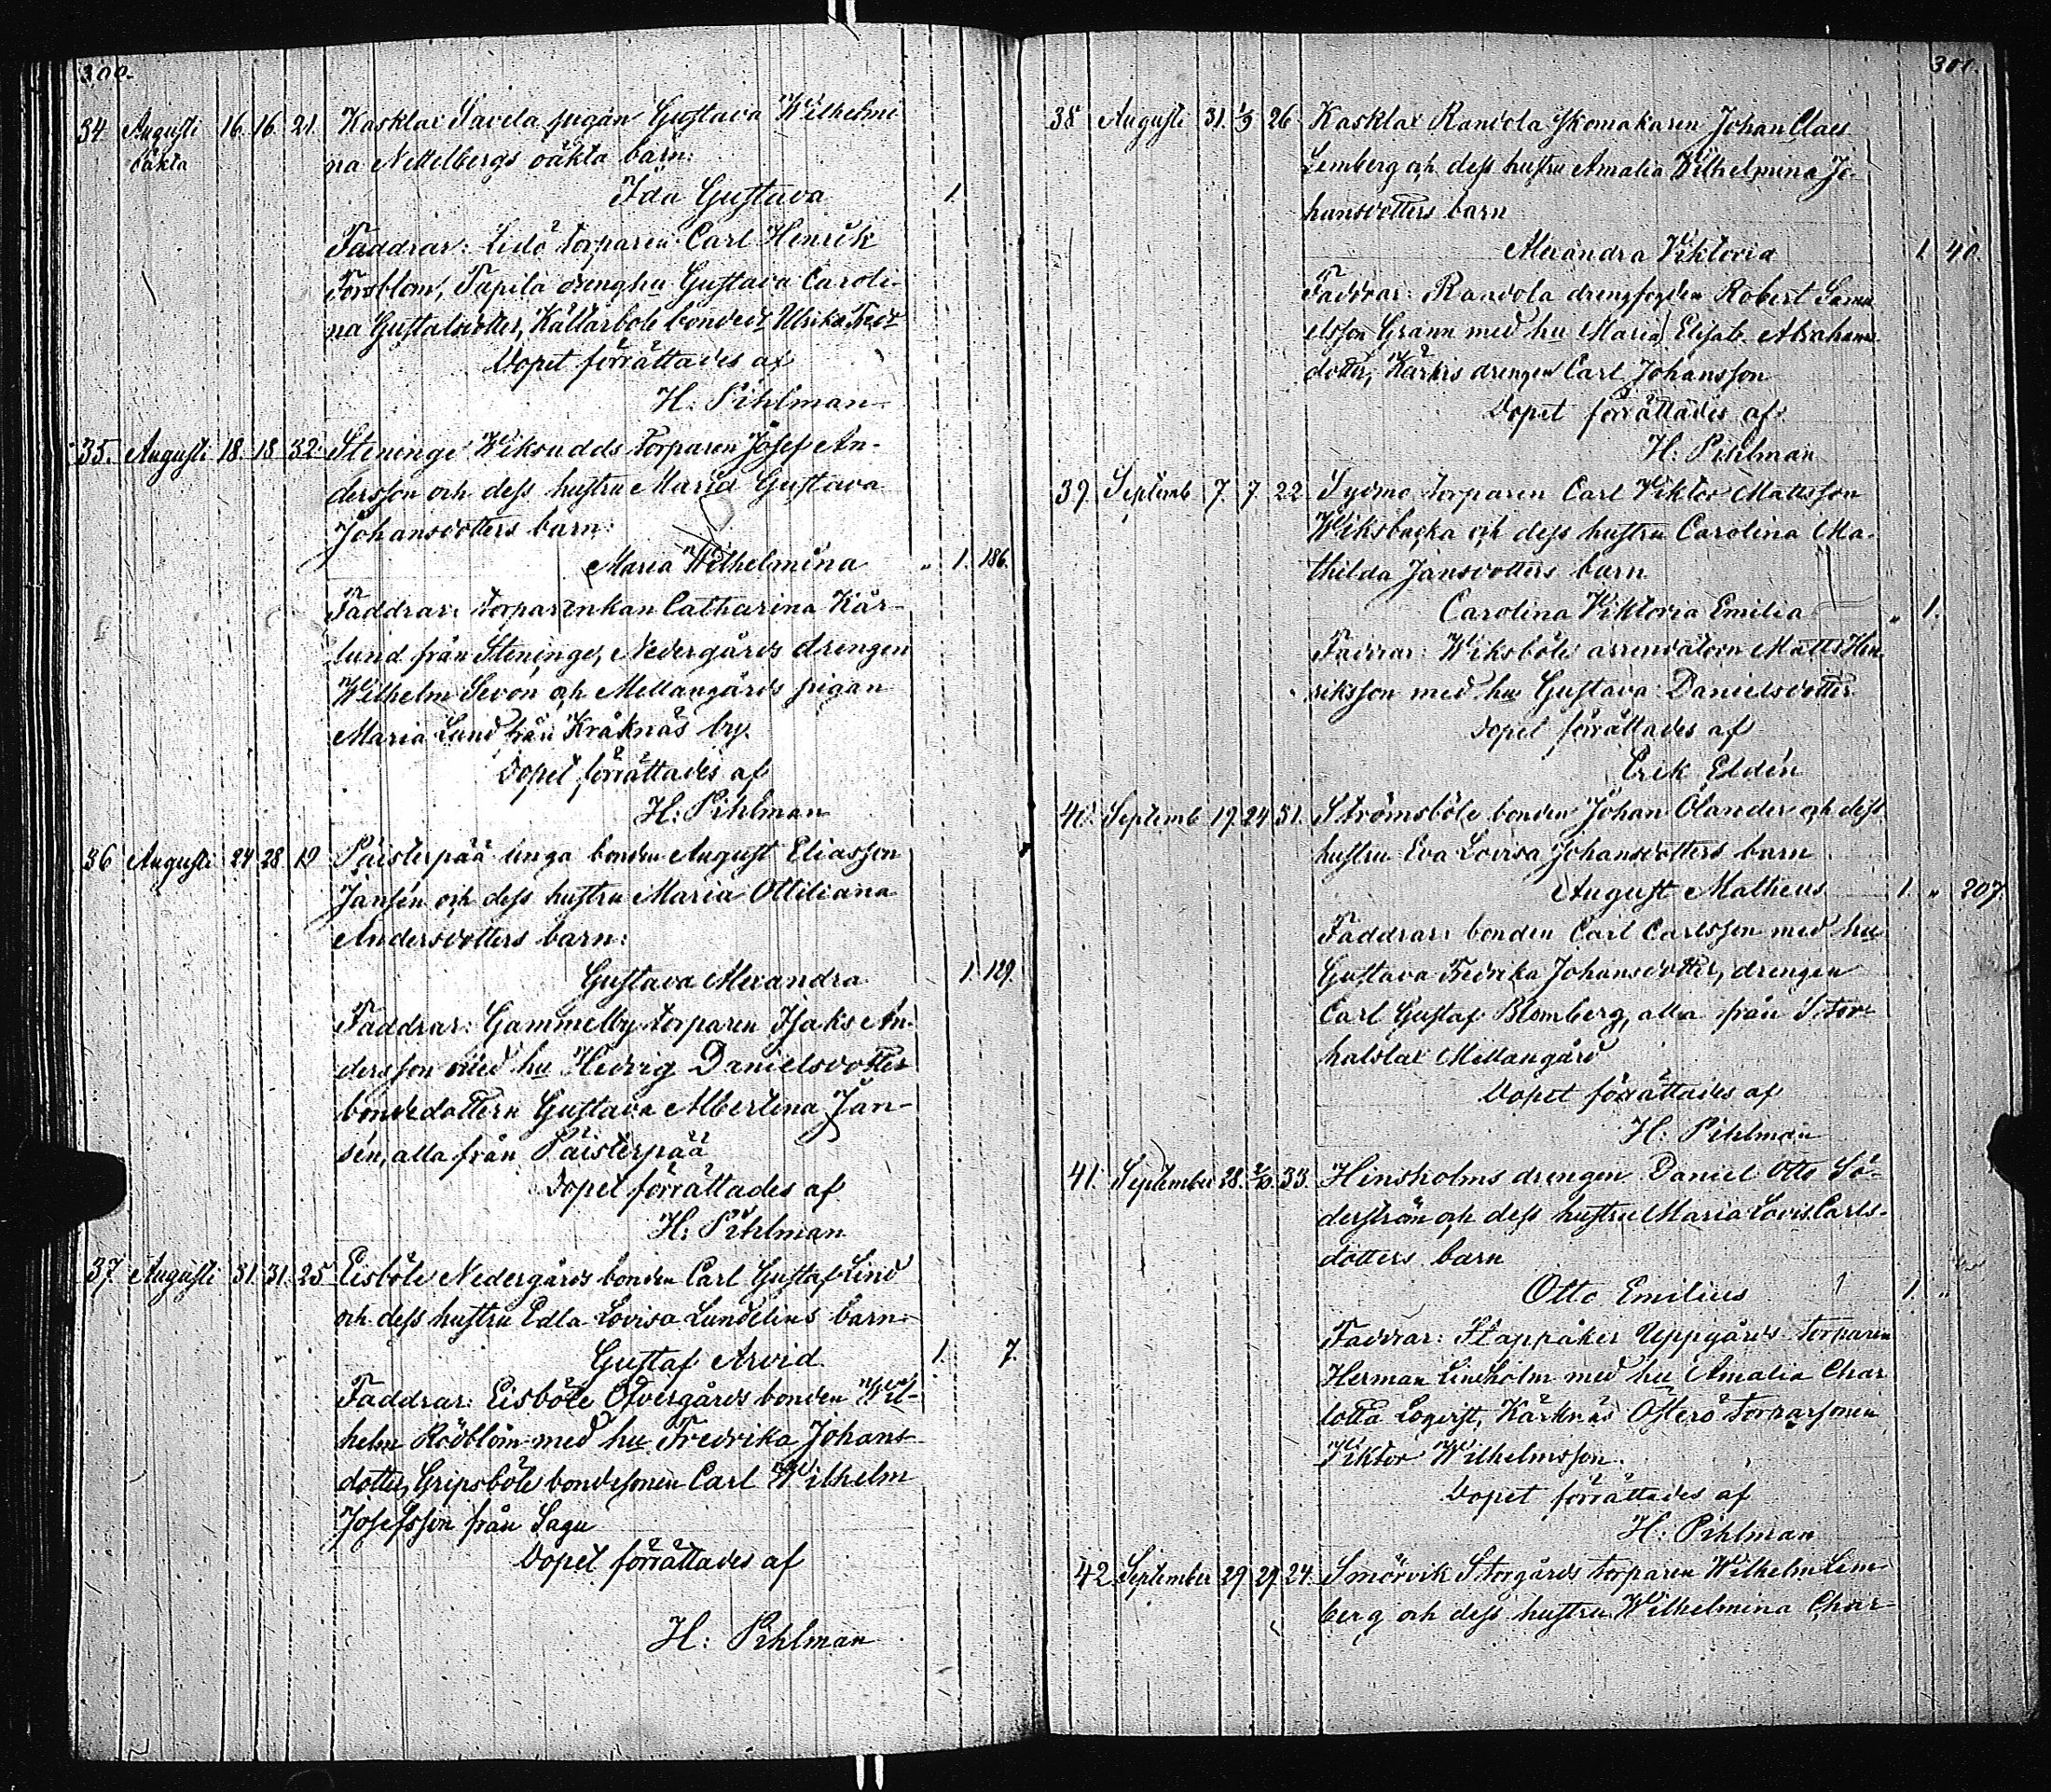 300.
34 Augusti 16. 16. 21. Kasklax Tavila pigan Gustava Wilhelmi
oäkta na Nettelbergs oäkta barn:
Ida Gustava 1.
Faddrar: Lidö torparen Carl Henrik
Forsblom, Tapila drenghu Gustava Caroli-
na Gustafsdotter, Källarbole bonded Ulrika
Dopet förrättades af
H. Pihlman
35. Augusti 18. 18 32. Steninge Wiksudds torparen Josef An-
dersson och dess hustru Maria Gustava
Johansdotters barn:
Maria Wilhelmina " 1. 186.
Faddrar: torparenkan Catharina Kår-
lund från Steninge, Nedergårds drengen
Wilhelm Sevon och Mellangårds pigan
Maria Lund från Kråknäs by.
Dopet förrättades af
H. Pihlman
36 Augusti 24 28 19 Päisterpää unga bonden August Eliasson
Jansén och dess hustru Maria Ottiliana
Andersdotters barn:
Gustava Alexandra 1. 129.
Faddrar: Gammelby torparen Isaks An-
dersson med hu Hedvig Danielsdotter
bondedottern Gustava Albertina Jan-
sén, alla från Päisterpää
Dopet förrättades af
H. Pihlman
37. Augusti 31. 31. 25 Eisböle Nedergårds bonden Carl Gustaf Lind
och dess hustru Edla Lovisa Lundelins barn:
Gustaf Arvid 1. 7.
Faddrar: Eisböle Öfvergårds bonden Wil-
helm Rödblom med hu Fredrika Johans-
dotter, Gripsböle bondesonen Carl Wilhelm
Josefsson från Sagu
Dopet förrättades af
H: Pihlman
301.
38 Augusti 31. 1/9 26 Kasklax Randola skomakaren Johan Claes
Lemberg och dess hustru Amalia Wilhelmina Jo-
hansdotters barn
Alexandra Viktoria 1. 40.
Faddrar: Randola drengfogden Robert Samu
elsson Grann med hu Maria Elisab. Abrahams
dotter, drengen Carl Johansson
Dopet förrättades af
H. Pihlman
39. Septemb 7. 7. 22. Sydmo torparen Carl Viktor Mattsson
Wiksbacka och dess hustru Carolina Ma-
thilda Jansdotters barn
Carolina Viktoria Emilia " 1.
Faddrar: Wiksböle arrendatorn Matts Hen
riksson med hu Gustava Danielsdotter
Dopet förrättades af
Erik Eldén
40. Septemb 19. 24 31. Strömsböle bonden Johan Ölander och dess
hustru Eva Lovisa Johansdotters barn
August Matheus 1. " 207.
Faddrar: bonden Carl Carlsson med hu
Gustava Fredrika Johansdotter, drengen
Carl Gustaf Blomberg, alla från Stor-
halslax Mellangård
Dopet förrättades af
H. Pihlman
41. September 28. 33. Hinsholms drengen Daniel Otto Sö-
derström och dess hustru Maria Lovis. Carls-
dotters barn
Otto Emilius 1. "
Faddrar: Stappåker Uppgårds torparen
Herman Lindholm med hu Amalia Char
lotta Loqvist, Kärknäs Österö torparsonen
Viktor Wilhelmsson.
Dopet förrättades af
H. Pihlman
42. September 29 29. 24. Smörvik Storgårds torparen Wilhelm Lem
berg och dess hustru Wilhelmina Char-